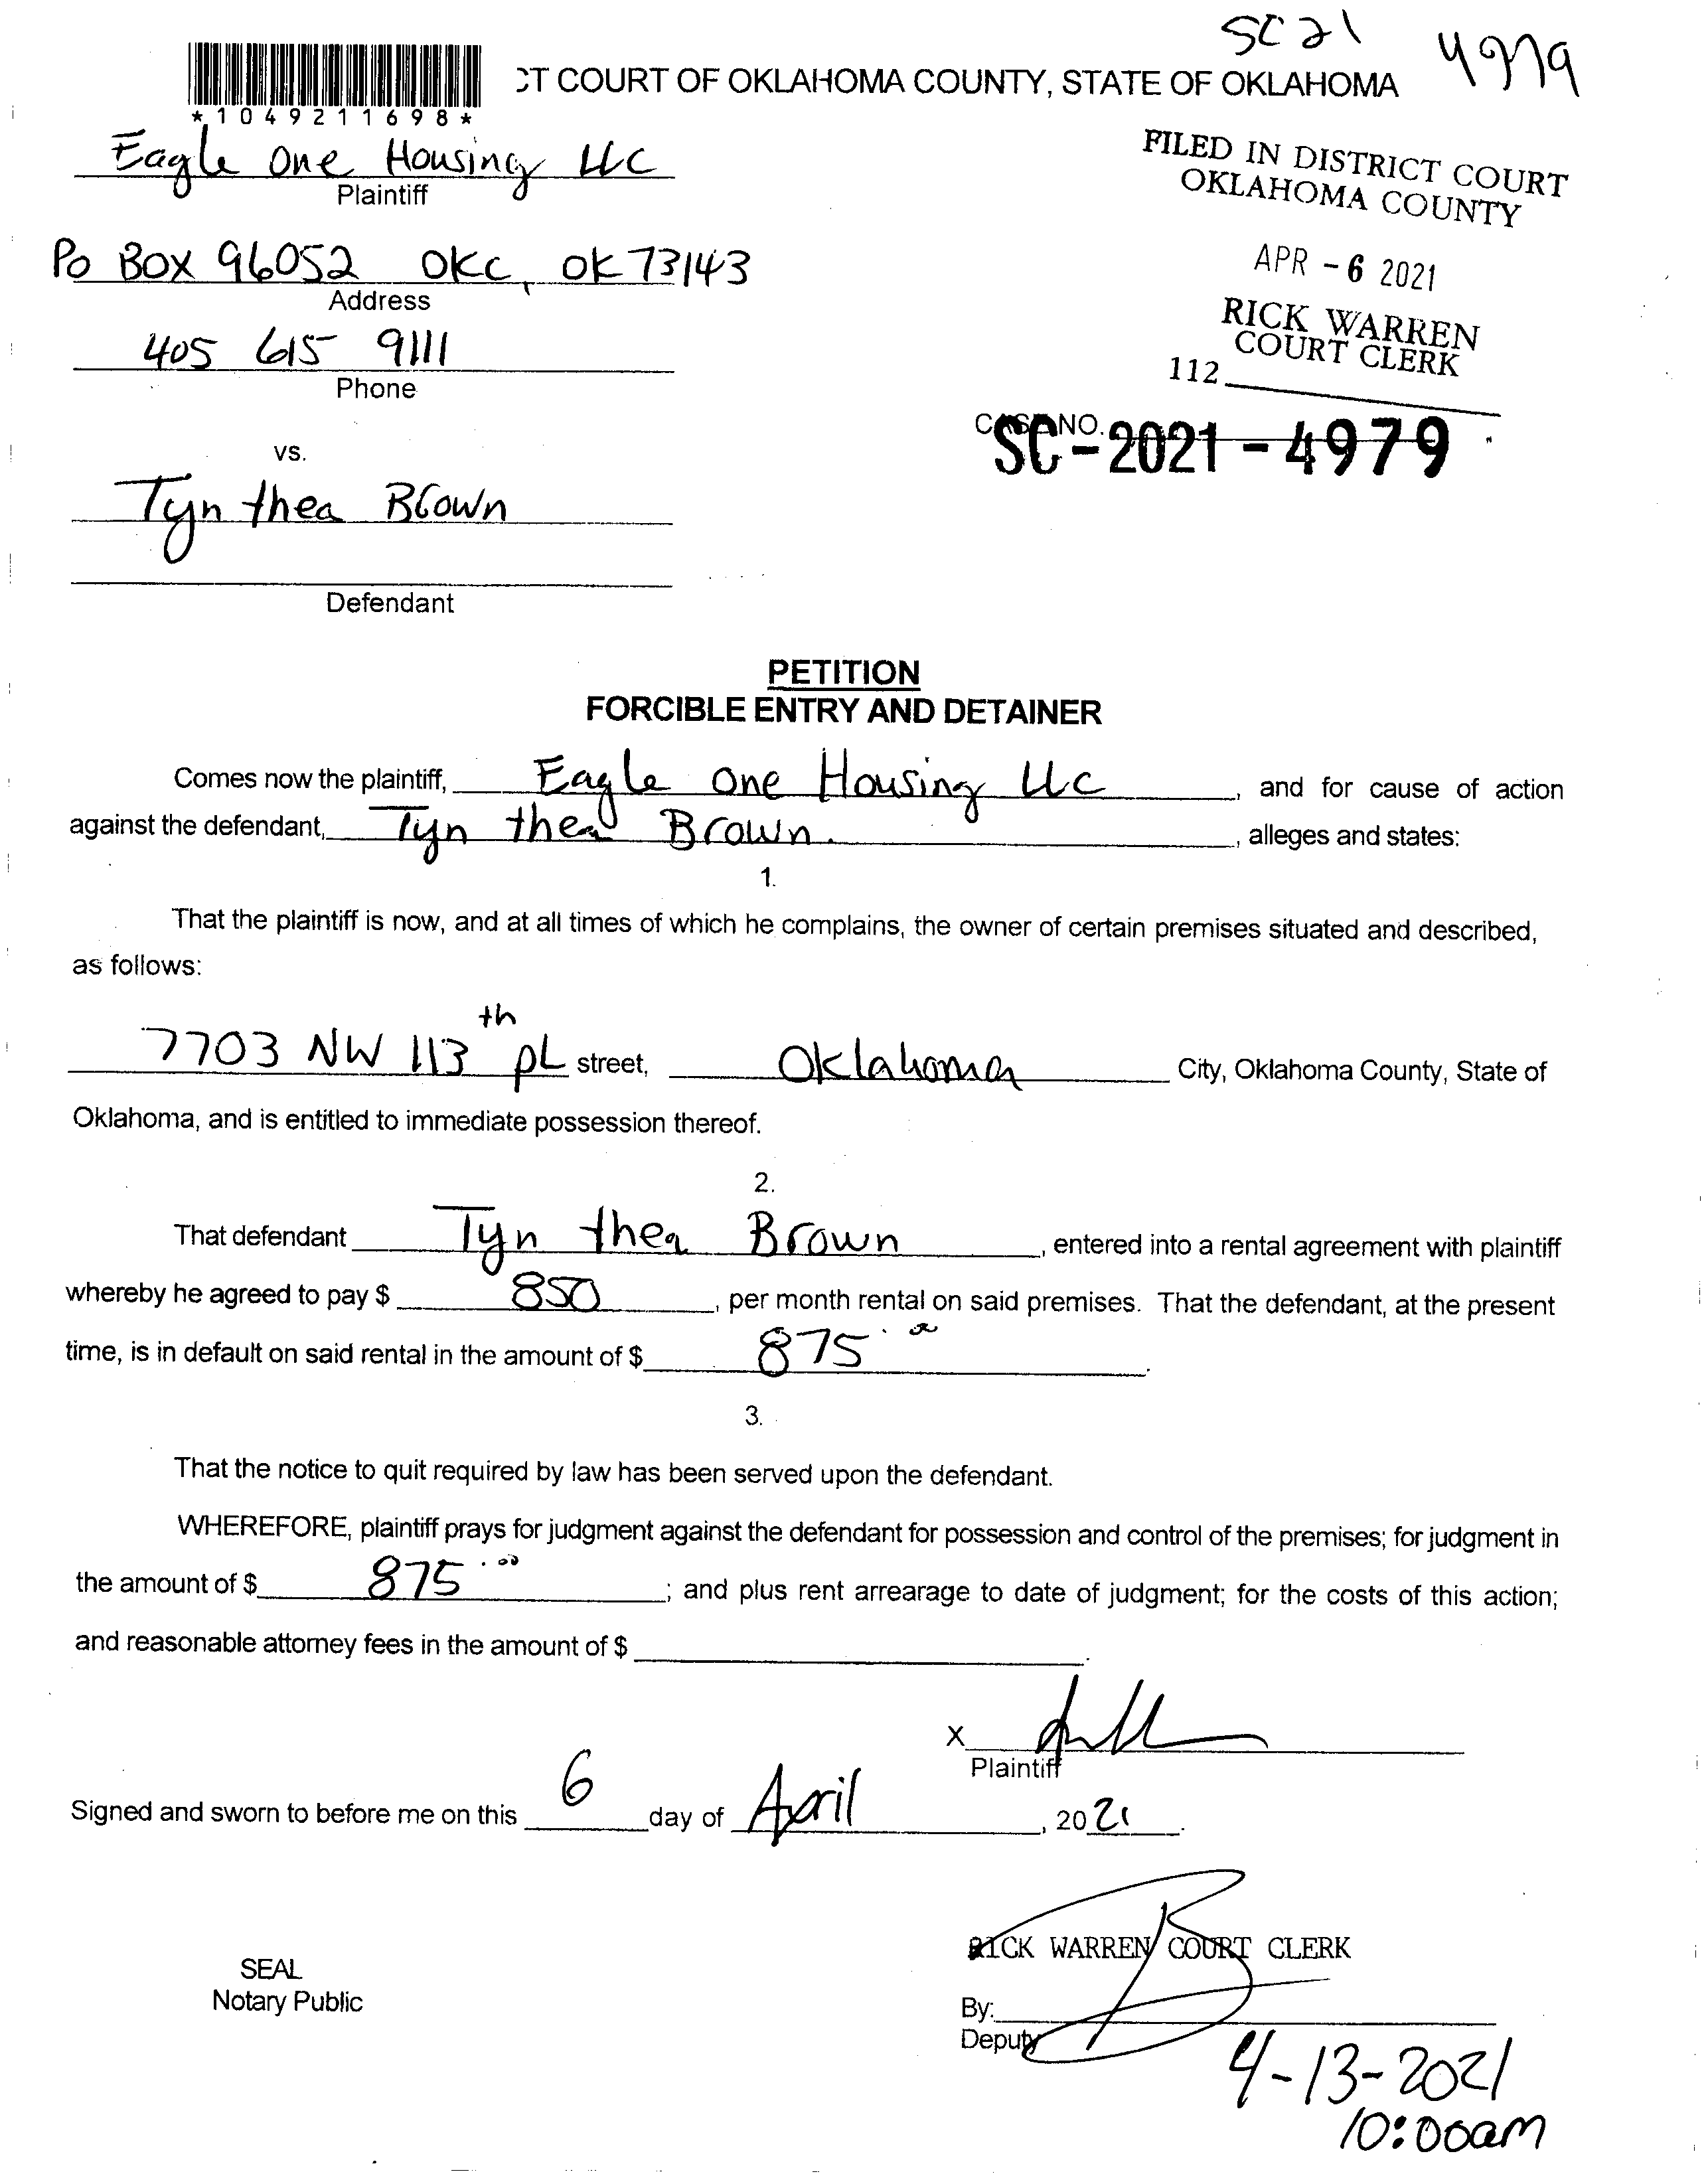 SC21 4979
CT COURT OF OKLAHOMA COUNTY, STATE OF OKLAHOMA
*1049211698*
Eagle One Housing LLC
Plaintiff
FILED IN DISTRICT COURT
OKLAHOMA COUNTY
PO BOX 96052 OKC, OK 73143
Address
APR -6 2021
405 615 9111
Phone
RICK WARREN
COURT CLERK
112
CASE NO. SC-2021-4979
vs.
Tyn thea Brown
Defendant
PETITION
FORCIBLE ENTRY AND DETAINER
Comes now the plaintiff, Eagle One Housing LLC, and for cause of action
against the defendant, Tyn thea Brown., alleges and states:
1.
That the plaintiff is now, and at all times of which he complains, the owner of certain premises situated and described,
as follows:
7703 NW 113th PL street, Oklahoma City, Oklahoma County, State of
Oklahoma, and is entitled to immediate possession thereof.
2.
That defendant Tyn thea Brown, entered into a rental agreement with plaintiff
whereby he agreed to pay $ 850, per month rental on said premises. That the defendant, at the present
time, is in default on said rental in the amount of $ 875.00.
3.
That the notice to quit required by law has been served upon the defendant.
WHEREFORE, plaintiff prays for judgment against the defendant for possession and control of the premises; for judgment in
the amount of $ 875.00; and plus rent arrearage to date of judgment; for the costs of this action;
and reasonable attorney fees in the amount of $ .
X
Plaintiff
Signed and sworn to before me on this 6 day of April, 2021.
RICK WARREN COURT CLERK
SEAL
Notary Public
By:
Deputy
4-13-2021
10:00am